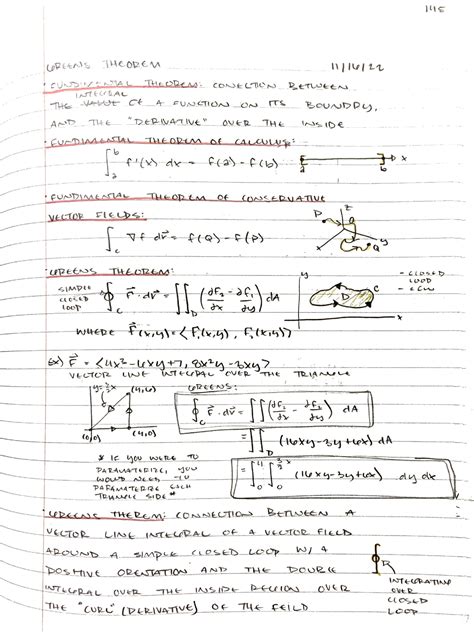 145
GREENS THEOREM 11/16/22
• FUNDIMENTAL THEOREM: CONECTION BETWEEN
INTEGRAL
THE VALUE OF A FUNCTION ON ITS BOUNDRY,
AND THE "DERIVATIVE" OVER THE INSIDE
• FUNDIMENTAL THEOREM OF CALCULUS:
∫_a^b f'(x) dx = f(a) - f(b)
a b x
• FUNDIMENTAL THEOREM OF CONSERVATIVE
VECTOR FIELDS:
∫_C ∇f dr⃗ = f(Q) - f(P)
P z x y Q
• GREENS THEOREM:
SIMPLE CLOSED LOOP ∮_C F⃗ · dr⃗ = ∬_D (∂F₂/∂x - ∂F₁/∂y) dA
y D C x
- CLOSED LOOP
- CCW
WHERE F⃗(x,y) = ⟨F₁(x,y), F₂(x,y)⟩
EX) F⃗ = ⟨4x²-6xy+7, 8x²y-3xy⟩
VECTOR LINE INTEGRAL OVER THE TRIANGLE
y=3/2x (4,6)
(0,0) (4,0)
GREENS:
∮_C F⃗ · dr⃗ = ∬_D (∂F₂/∂x - ∂F₁/∂y) dA
= ∬_D (16xy-3y+6x) dA
= ∫_0^4 ∫_0^{3/2 x} (16xy-3y+6x) dy dx
* IF YOU WERE TO
PARAMATERIZE, YOU
WOULD NEED TO
PARAMATERIZE EACH
TRIANGLE SIDE *
• GREENS THEREM: CONNECTION BETWEEN A
VECTOR LINE INTEGRAL OF A VECTOR FIELD
AROUND A SIMPLE CLOSED LOOP W/ A
POSITIVE ORENTATION AND THE DOUBLE
INTEGRAL OVER THE INSIDE REGION OVER
THE "CURL" (DERIVATIVE) OF THE FEILD
R
INTEGRATING
OVER
CLOSED
LOOP